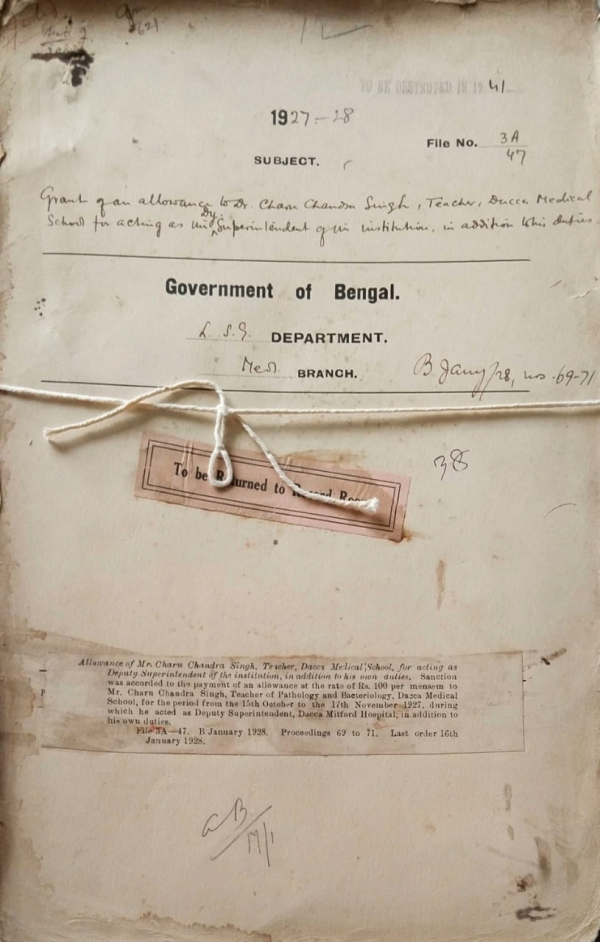 TO BE DESTROYED IN 19 41
1927-28
File No. 3A
47
SUBJECT.
Grant of an allowance to Dr. Charu Chandra Singh, Teacher, Dacca Medical
School for acting as Dy. Superintendent of the institution, in addition to his duties.
Government of Bengal.
L. S. G. DEPARTMENT.
Med. BRANCH.
B Jany/28, nos. 69-71
38
To be Returned to Record Room
Allowance of Mr. Charu Chandra Singh, Teacher, Dacca Medical School, for acting as
Deputy Superintendent of the institution, in addition to his own duties. Sanction
was accorded to the payment of an allowance at the rate of Rs. 100 per mensem to
Mr. Charu Chandra Singh, Teacher of Pathology and Bacteriology, Dacca Medical
School, for the period from the 15th October to the 17th November 1927, during
which he acted as Deputy Superintendent, Dacca Mitford Hospital, in addition to
his own duties.
File 3A—47. B January 1928. Proceedings 69 to 71. Last order 16th
January 1928.